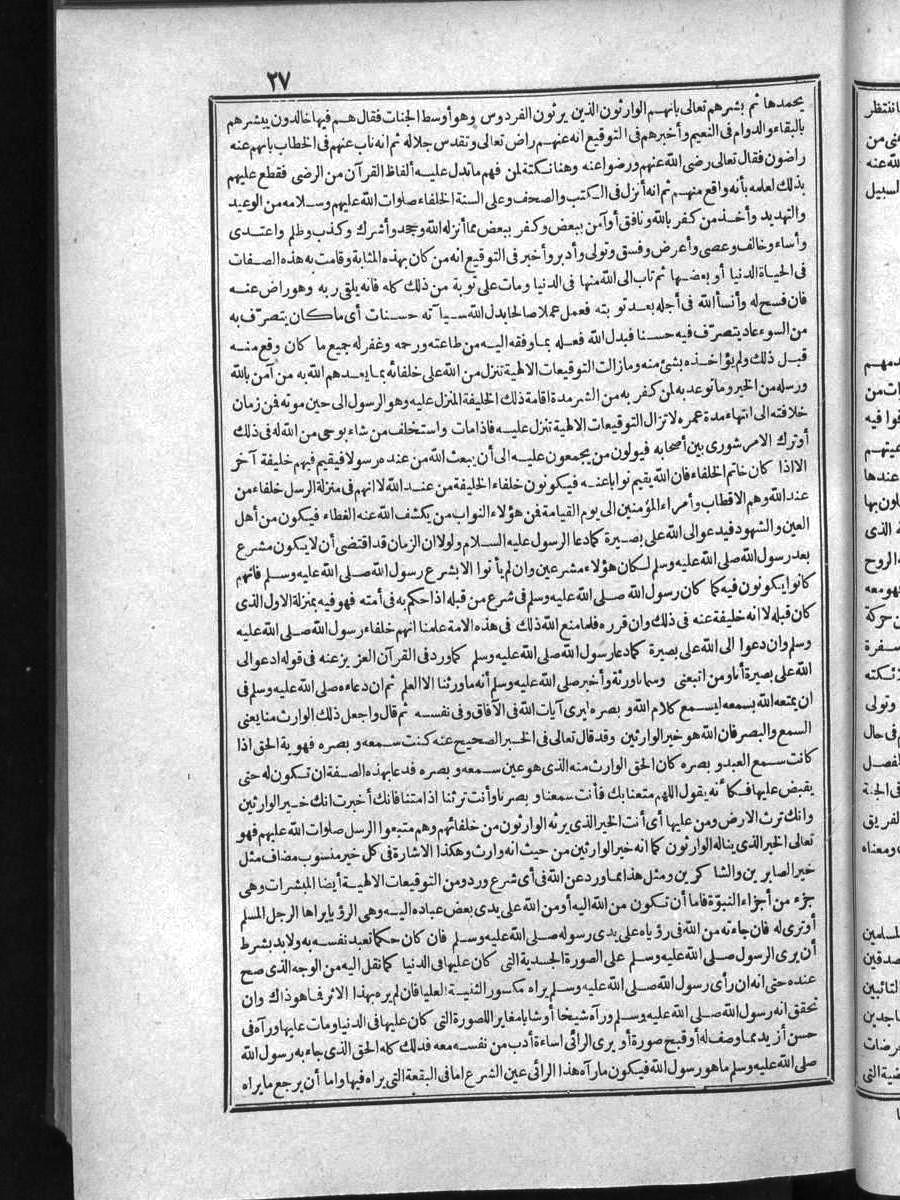 ٢٧
يحمدها ثم بشرهم تعالى بانهم الوارثون الذين يرثون الفردوس وهو أوسط الجنات فقال هم فيها خالدون يبشرهم
بالبقاء والدوام فى النعيم وأخبرهم فى التوقيع انه عنهم راض تعالى وتقدس جلاله ثم انه ناب عنهم فى الخطاب بانهم عنه
راضون فقال تعالى رضى الله عنهم ورضوا عنه وهنا نكتة لمن فهم ما تدل عليه ألفاظ القرآن من الرضى فقطع عليهم
بذلك لعلمه بأنه واقع منهم ثم انه أنزل فى الكتب والصحف وعلى السنة الخلفاء صلوات الله عليهم وسلامه من الوعيد
والتهديد وأخذ من كفر بالله ونافق أو آمن ببعض وكفر ببعض مما أنزله الله وجحد وأشرك وكذب وظلم واعتدى
وأساء وخالف وعصى وأعرض وفسق وتولى وأدبر وأخبر فى التوقيع انه من كان بهذه المثابة وقامت به هذه الصفات
فى الحياة الدنيا أو بعضها ثم تاب الى الله منها فى الدنيا ومات على توبة من ذلك كله فانه يلقى ربه وهو راض عنه
فان فسح له وأنسأ الله فى أجله بعد توبته فعمل عملا صالحا بدل الله سيآته حسنات أى ما كان يتصرّف به
من السوء عاد يتصرّف فيه حسنا فبدل الله فعله بما وفقه اليه من طاعته ورحمه وغفر له جميع ما كان وقع منه
قبل ذلك ولم يؤاخذه بشئ منه وما زالت التوقيعات الالهية تنزل من الله على خلفائه بما يعدهم الله به من آمن بالله
ورسله من الخير وما توعد به لمن كفر به من الشر مدة اقامة ذلك الخليفة المنزل عليه وهو الرسول الى حين موته فمن زمان
خلافته الى انتهاء مدة عمره لا تزال التوقيعات الالهية تنزل عليه فاذا مات واستخلف من شاء بوحى من الله له فى ذلك
أو ترك الامر شورى بين أصحابه فيولون من يجمعون عليه الى أن يبعث الله من عنده رسولا فيقيم فيهم خليفة آخر
الا اذا كان خاتم الخلفاء فان الله يقيم نوابا عنه فيكونون خلفاء الخليفة من عند الله لا انهم فى منزلة الرسل خلفاء من
عند الله وهم الاقطاب وأمراء المؤمنين الى يوم القيامة فمن هؤلاء النواب من يكشف الله عنه الغطاء فيكون من أهل
العين والشهود فيدعو الى الله على بصيرة كما دعا الرسول عليه السلام ولولا ان الزمان قد اقتضى أن لا يكون مشرع
بعد رسول الله صلى الله عليه وسلم لكان هؤلاء مشرعين وان لم يأتوا الا بشرع رسول الله صلى الله عليه وسلم فانهم
كانوا يكونون فيه كما كان رسول الله صلى الله عليه وسلم فى شرع من قبله اذا حكم به فى أمته فهو فيه بمنزلة الاول الذى
كان قبله لا انه خليفة عنه فى ذلك وان قرره فلما منع الله ذلك فى هذه الامة علمنا انهم خلفاء رسول الله صلى الله عليه
وسلم وان دعوا الى الله على بصيرة كما دعا رسول الله صلى الله عليه وسلم كما ورد فى القرآن العزيز عنه فى قوله ادعو الى
الله على بصيرة أنا ومن اتبعنى وسمانا ورثة وأخبر صلى الله عليه وسلم أنه ما ورثنا الا العلم ثم ان دعاءه صلى الله عليه وسلم فى
ان يمتعه الله بسمعه ليسمع كلام الله وبصره ليرى آيات الله فى الآفاق وفى نفسه ثم قال واجعل ذلك الوارث منا يعنى
السمع والبصر فان الله هو خير الوارثين وقد قال تعالى فى الخبر الصحيح عنه كنت سمعه وبصره فهوية الحق اذا
كانت سمع العبد وبصره كان الحق الوارث منه الذى هو عين سمعه وبصره فدعا بهذه الصفة ان تكون له حتى
يقبض عليها فكأنه يقول اللهم متعنا بك فأنت سمعنا وبصرنا وأنت ترثنا اذا متنا فانك أخبرت انك خير الوارثين
وانك ترث الارض ومن عليها أى أنت الخير الذى يرثه الوارثون من خلفائهم وهم متبعوا الرسل صلوات الله عليهم فهو
تعالى الخير الذى يناله الوارثون كما انه خير الوارثين من حيث انه وارث وهكذا الاشارة فى كل خير منسوب مضاف مثل
خير الصابرين والشاكرين ومثل هذا مما ورد عن الله فى أى شرع ورد ومن التوقيعات الالهية أيضا المبشرات وهى
جزء من أجزاء النبوّة فاما أن تكون من الله اليه أو من الله على يدى بعض عباده اليه وهى الرؤيا يراها الرجل المسلم
أو ترى له فان جاءته من الله فى رؤياه على يدى رسوله صلى الله عليه وسلم فان كان حكما تعبد نفسه به ولا بد بشرط
أن يرى الرسول صلى الله عليه وسلم على الصورة الجسدية التى كان عليها فى الدنيا كما نقل اليه من الوجه الذى صح
عنده حتى انه ان رأى رسول الله صلى الله عليه وسلم يراه مكسور الثنية العليا فان لم يره بهذا الاثر فما هو ذاك وان
تحقق انه رسول الله صلى الله عليه وسلم ورآه شيخا أو شابا مغاير اللصورة التى كان عليها فى الدنيا ومات عليها ورآه فى
حسن أزيد مما وصف له أو قبح صورة أو يرى الرائى اساءة أدب من نفسه معه فذلك كله الحق الذى جاء به رسول الله
صلى الله عليه وسلم ما هو رسول الله فيكون ما رآه هذا الرائى عين الشرع اما فى البقعة التى يراه فيها واما أن يرجع ما يراه